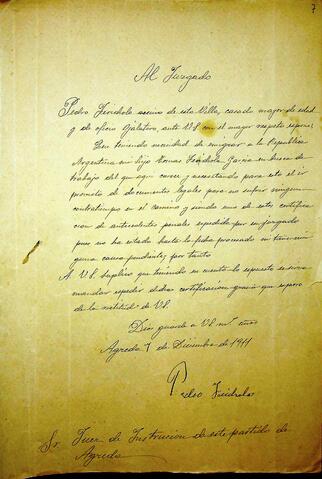 7
Al Juzgado
Pedro vecino de esta Villa, casado mayor de edad
y de oficio ante VS con el mayor respeto expone:
Que teniendo necesidad de emigrar a la República
Argentina mi hijo Tomas García en busca de
trabajo del que aqui carece y necesitando para esto el ir
provisto de documentos legales para no sufrir ningun
contratiempo en el camino y siendo uno de estos certifica
cion de antecedentes penales expedida por su juzgado
pues no ha estado hasta la fecha procesado ni tiene nin
guna causa pendiente; por tanto
A VS suplico que teniendo en cuenta lo expuesto se sirva
mandar expedir dicha certificación gracia que espero
de la rectitud de VS.
Dios guarde a VS ms años
Agreda 7 de Diciembre de 1911
Pedro
Sr Juez de Instrucion de este partido de
Agreda